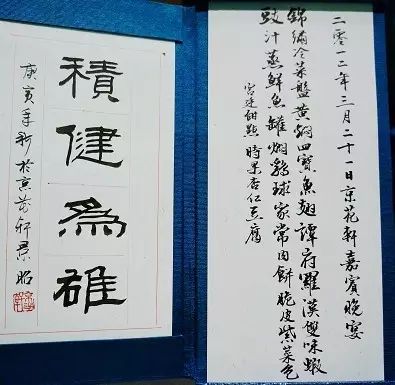 二零一二年三月二十一日京花軒嘉賓晚宴
錦繡冷菜盤黃燜四寶魚翅譚府羅漢雙味蝦
豉汁蒸鮮魚罐燜鷄球家常肉餅脆皮紫菜包
宮廷甜點時果杏仁豆腐
積健為雄
庚寅年秋於京花軒景昭